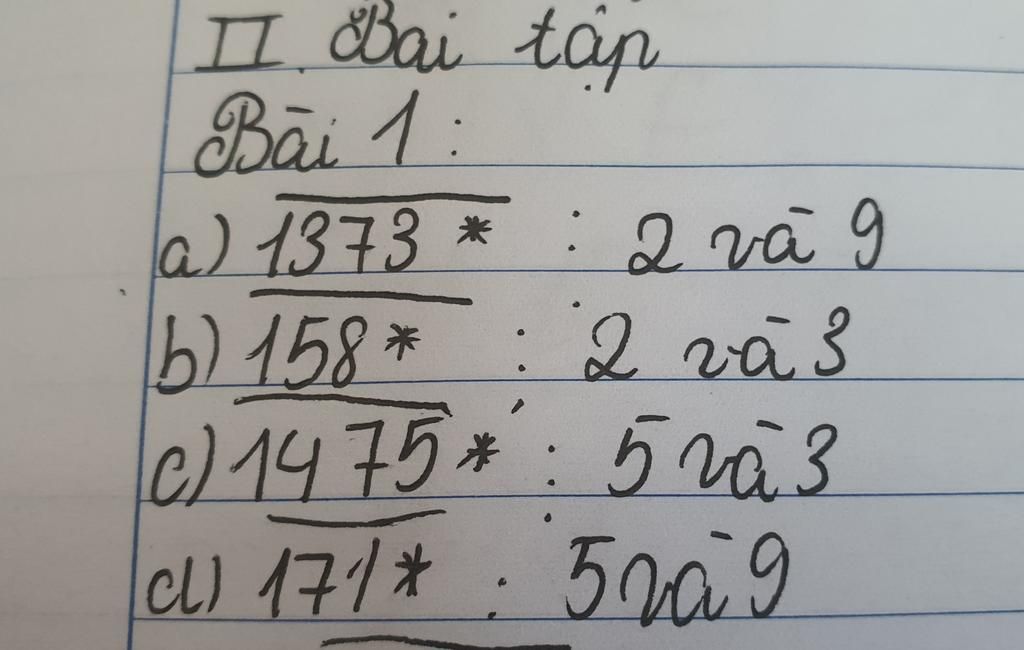 II. Bài tập
Bài 1:
a) 1373* ⋮ 2 và 9
b) 158* ⋮ 2 và 3
c) 1475* ⋮ 5 và 3
d) 171* ⋮ 5 và 9